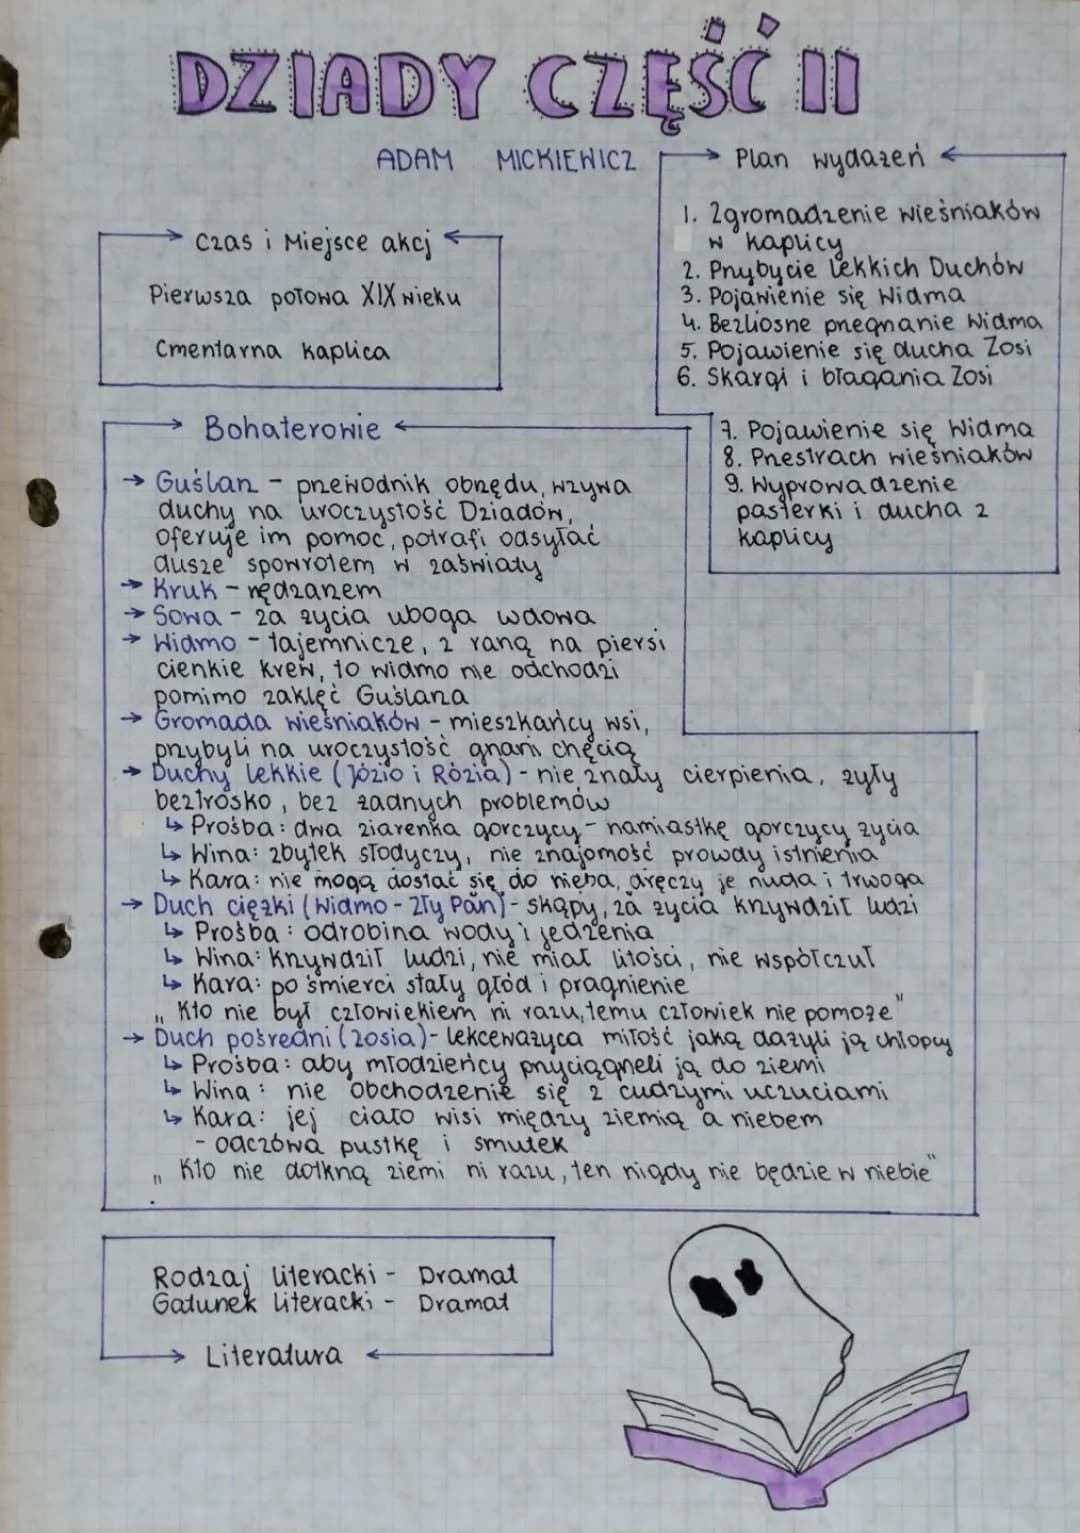 DZIADY CZĘŚĆ II
ADAM MICKIEWICZ
Czas i Miejsce akcj
Pierwsza połowa XIX wieku
Cmentarna kaplica
Plan wydażeń
1. Zgromadzenie wieśniaków
w kaplicy
2. Przybycie Lekkich Duchów
3. Pojawienie się Widma
4. Bezliosne przegnanie Widma
5. Pojawienie się ducha Zosi
6. Skargi i błagania Zosi
7. Pojawienie się Widma
8. Przestrach wieśniaków
9. Wyprowadzenie
pasterki i ducha z
kaplicy
Bohaterowie
→ Guślarz - przewodnik obrzędu, wzywa
duchy na uroczystość Dziadów,
oferuje im pomoc, potrafi odsyłać
dusze spowrotem w zaświaty
→ Kruk - nędzarzem
→ Sowa - za życia uboga wdowa
→ Widmo - tajemnicze, z raną na piersi
cienkie krew, to widmo nie odchodzi
pomimo zaklęć Guślarza
→ Gromada wieśniaków - mieszkańcy wsi,
przybyli na uroczystość gnani chęcią
→ Duchy lekkie (Józio i Rózia) - nie znały cierpienia, żyły
beztrosko, bez żadnych problemów
↳ Prośba: dwa ziarenka gorczycy - namiastkę gorczycy życia
↳ Wina: zbytek słodyczy, nie znajomość prowdy istnienia
↳ Kara: nie mogą dostać się do nieba, dręczy je nuda i trwoga
→ Duch ciężki (Widmo - Zły Pan) - skąpy, za życia krzywdził ludzi
↳ Prośba: odrobina wody i jedzenia
↳ Wina: krzywdził ludzi, nie miał litości, nie współczuł
↳ Kara: po śmierci stały głód i pragnienie
„Kto nie był człowiekiem ni razu, temu człowiek nie pomoże"
→ Duch pośredni (Zosia) - lekceważyca miłość jaką dażyli ją chłopcy
↳ Prośba: aby młodzieńcy przyciągneli ją do ziemi
↳ Wina: nie obchodzenie się z cudzymi uczuciami
↳ Kara: jej ciało wisi między ziemią a niebem
- odczówa pustkę i smutek
„Kto nie dotkną ziemi ni razu, ten nigdy nie będzie w niebie"
Rodzaj literacki - Dramat
Gatunek literacki - Dramat
Literatura